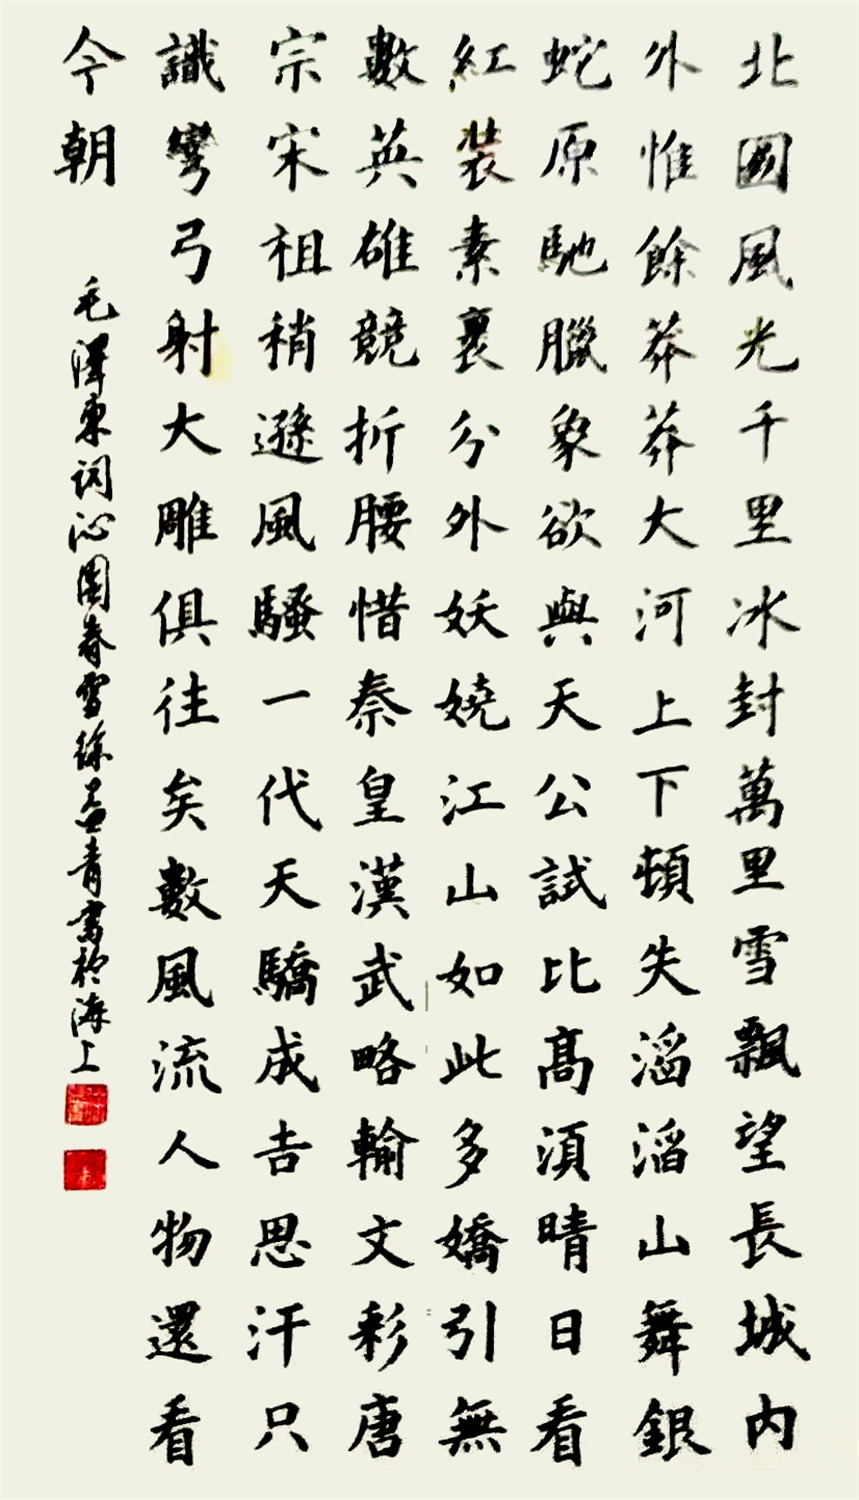 北國風光千里冰封萬里雪飄望長城內
外惟餘莽莽大河上下頓失滔滔山舞銀
蛇原馳臘象欲與天公試比髙湏晴日看
紅裝素裹分外妖嬈江山如此多嬌引無
數英雄競折腰惜秦皇漢武略輸文彩唐
宗宋祖稍遜風騷一代天驕成吉思汗只
識彎弓射大雕俱往矣數風流人物還看
今朝
毛澤東詞沁園春雪徐益青書於海上